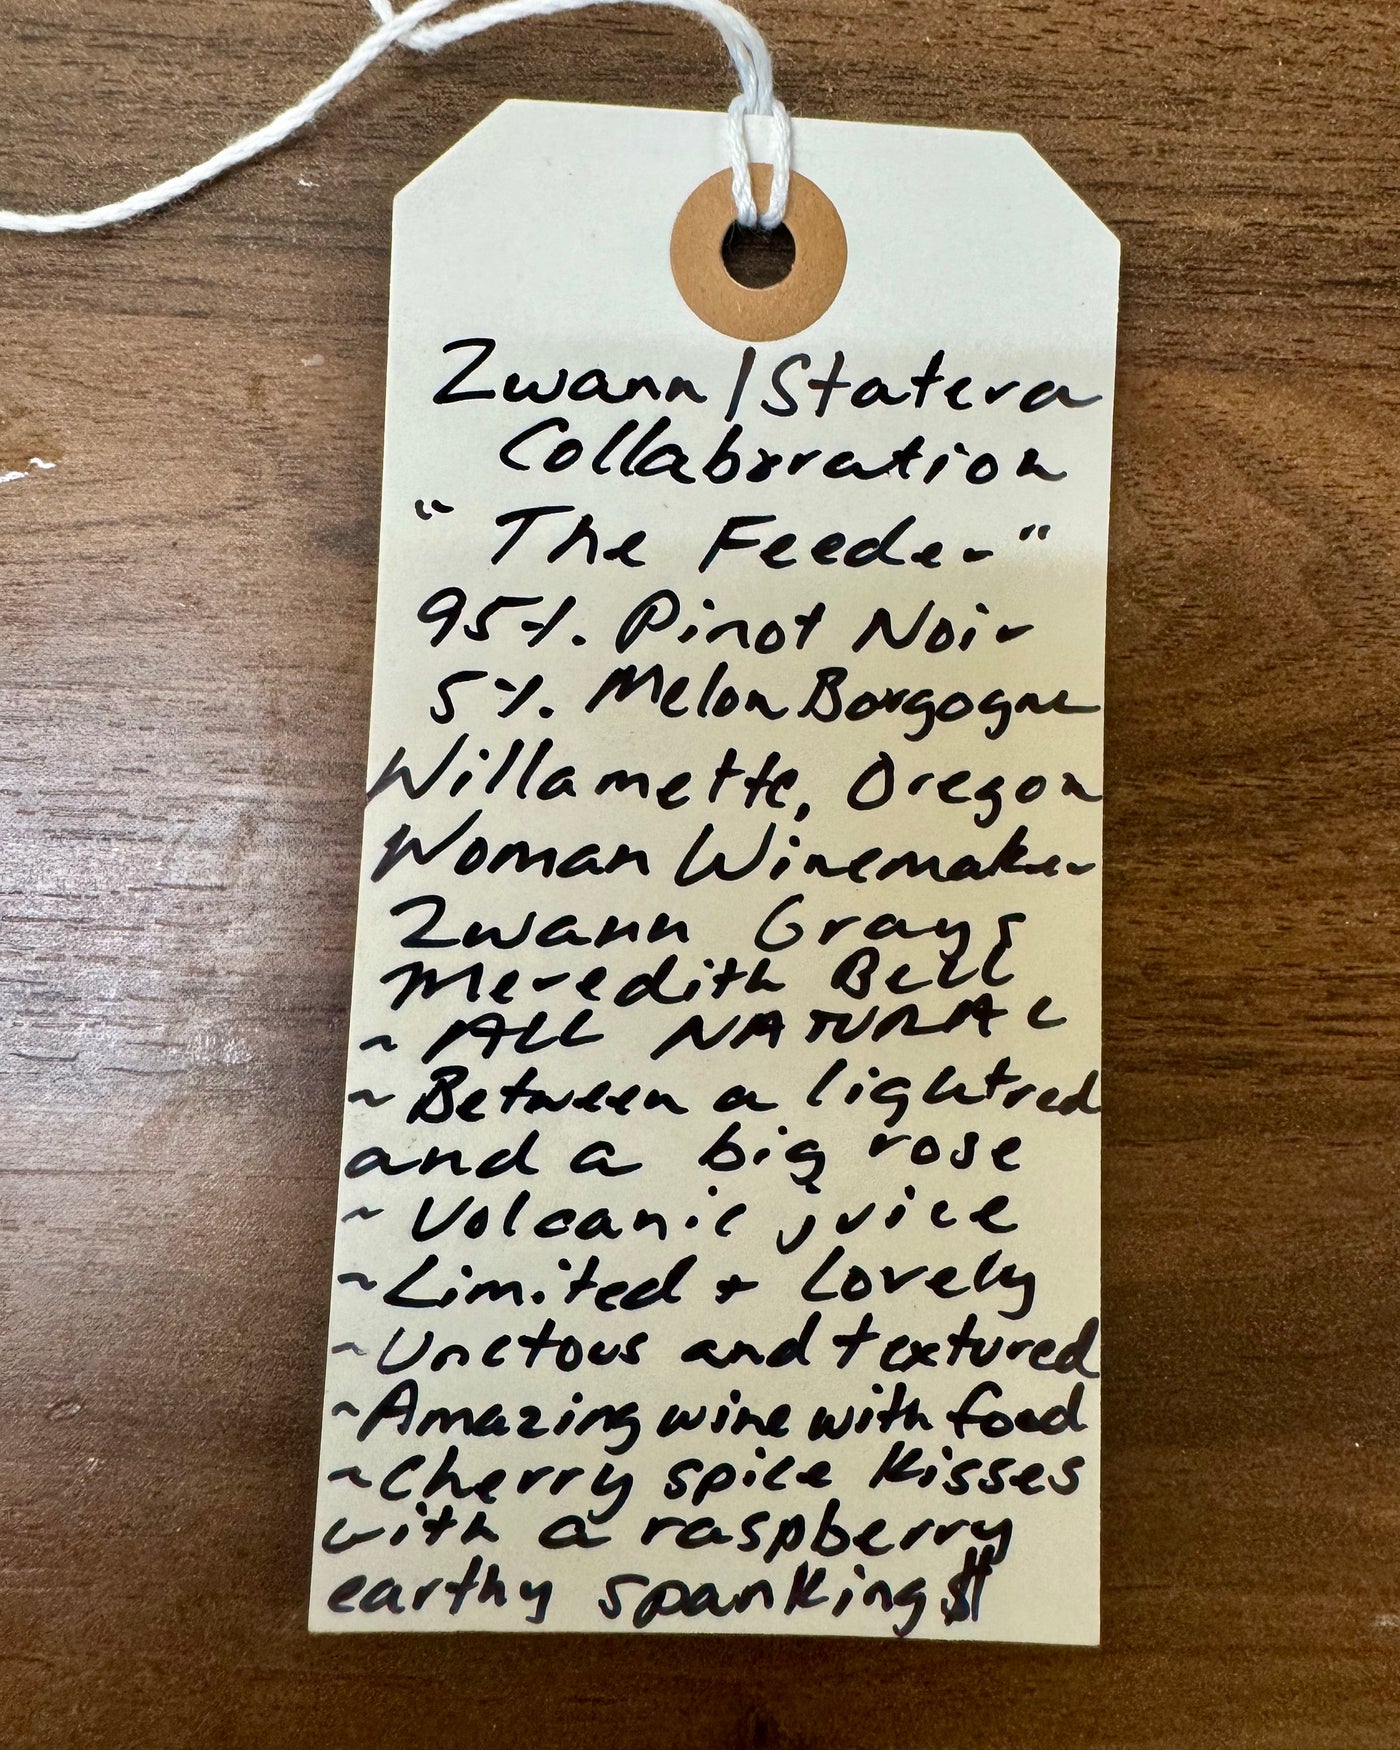 Zwann/Statera
Collaboration
"The Feeder"
95%. Pinot Noir
5%. Melon Borgogne
Willamette, Oregon
Woman Winemaker
Zwann Grays
Meredith Bell
~ ALL NATURAL
~ Between a light red
and a big rose
~ Volcanic juice
~ Limited + Lovely
~ Unctous and textured
~ Amazing wine with food
~ Cherry spice kisses
with a raspberry
earthy spanking